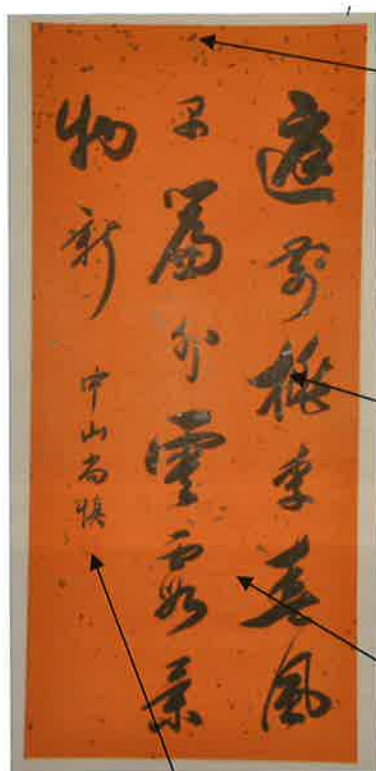 庭前桃李春風
早簷外雲霞景
物新
中山尚慎